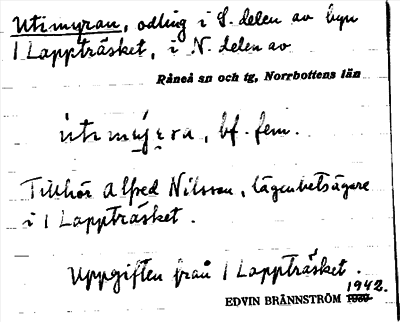 Utimyran, odling i S. delen av byn
1 Lappträsket, i N. delen av
Råneå sn och tg, Norrbottens län
ù̀timỳ̀ra, bf. fem.
Tillhör Alfred Nilsson, lägenhetsägare
i 1 Lappträsket.
Uppgiften från 1 Lappträsket.
EDVIN BRÄNNSTRÖM 1939 1942.